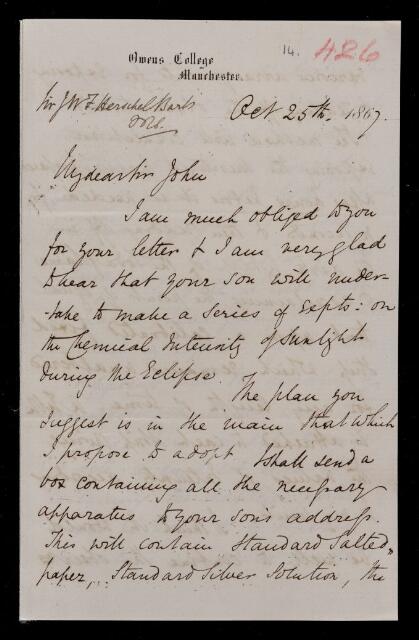 Owens College
Manchester.
14.
426
Sir J W F Herschel Bart
Oct 25th. 1867.
My dear Sir John
I am much obliged to you
for your letter & I am very glad
to hear that your son will under-
-take to make a series of Expts: on
the Chemical Intensity of Sunlight
during the Eclipse. The plan you
suggest is in the main that which
I propose to adopt I shall send a
box containing all the necessary
apparatus to your son's address.
This will contain Standard Salted-
paper, Standard Silver Solution, the